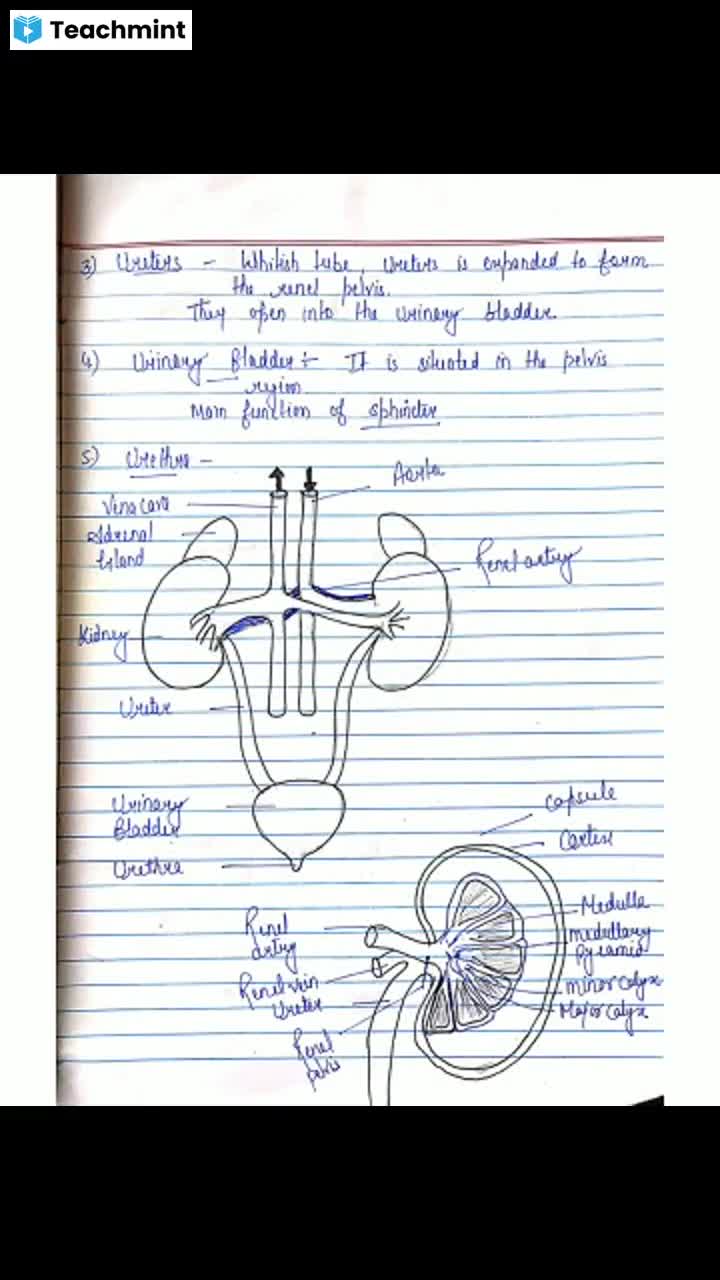 Teachmint
3) Ureters - Whitish tube, Ureters is expanded to form
the renel pelvis.
They open into the urinary bladder.
4) Urinary Bladder ÷ It is situated in the pelvis
region
Main function of sphincter
5) Urethra -
Aorta
Vena cava
Adrenal
Gland
Renel artery
Kidney
Ureter
Urinary
Bladder
Urethra
Capsule
Cortex
Medulla
medullary
Pyramid
minor calyx
Major calyx
Renel
artery
Renel vein
Ureter
Renel
pelvis